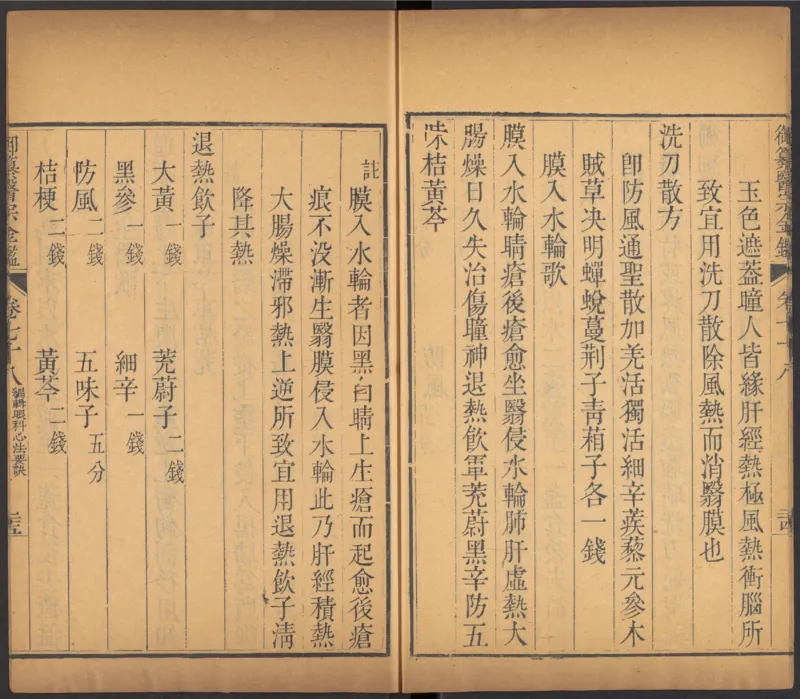 玉色遮蓋瞳人皆緣肝經熱極風熱衝腦所
致宜用洗刀散除風熱而消翳膜也
洗刀散方
卽防風通聖散加羌活獨活細辛蒺藜元參木
賊草決明蟬蛻蔓荆子靑葙子各一錢
膜入水輪歌
膜入水輪睛瘡後瘡愈坐翳侵水輪肺肝虛熱大
腸燥日久失治傷瞳神退熱飮軍茺蔚黑辛防五
味桔黃芩
御纂醫宗金鑑
卷七十八
註
膜入水輪者因黑白睛上生瘡而起愈後瘡
痕不没漸生翳膜侵入水輪此乃肝經積熱
大腸燥滯邪熱上逆所致宜用退熱飮子淸
降其熱
退熱飮子
大黃一錢 茺蔚子二錢
黑參一錢 細辛一錢
防風二錢 五味子五分
桔梗二錢 黃芩二錢
御纂醫宗金鑑
卷七十八
編輯眼科心法要訣